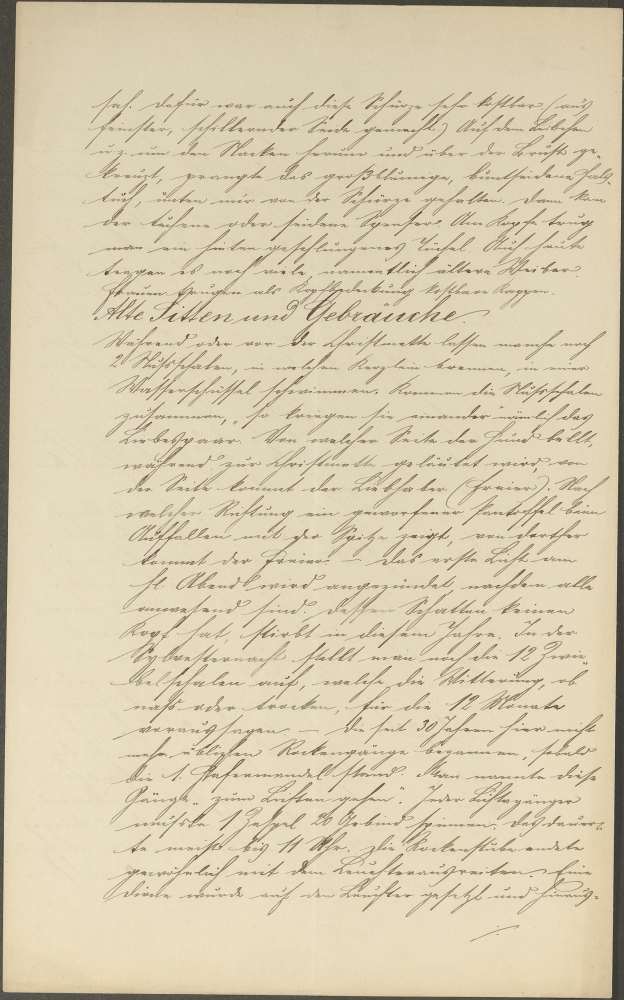 sah. Dafür war auch diese Schürze sehr kostbar (aus
feinster, schillernder Seide gemacht.) Auf dem Leibchen
u. z. um den Nacken herum und über der Brust ge-
kreuzt, prangte das großblumige, buntseidene Hals-
tuch, unten nur von der Schürze gehalten. Dann kam
der tuchene oder seidene Spenser. Am Kopfe trug
man ein hinten geschlungenes Tüchel. Auch heute
tragen es noch viele, namentlich ältere Weiber.
Frauen trugen als Kopfbedeckung kostbare Kappen.
Alte Sitten und Gebräuche.
Während oder vor der Christmette lassen manche noch
2 Nußschalen, in welchen Kerzlein brennen, in einer
Wasserschüssel schwimmen. Kommen die Nußschalen
zusammen, "so kriegen sie einander" nämlich das
Liebespaar. Von welcher Seite der Hund bellt,
während zur Christmette geläutet wird, von
der Seite kommt der Liebhaber (Freier). Nach
welcher Richtung ein geworfener Pantoffel beim
Auffallen mit der Spitze zeigt, von dorther
kommt der Freier. – Das erste Licht am
hl. Abend wird angezündet, nachdem alle
anwesend sind. Dessen Schatten keinen
Kopf hat, stirbt in diesem Jahre. In der
Sylvesternacht stellt man noch die 12 Zwie-
belschalen auf, welche die Witterung, ob
naß oder trocken, für die 12 Monate
voraussagen. – Die seit 30 Jahren hier nicht
mehr üblichen Rockengänge begannen, sobald
die 1. Hafermandel stand. Man nannte diese
Gänge "zum Lichten gehen". Jeder Lichtegänger
mußte 1 Zaspel 20 Gebind spinnen. Das dauer-
te meist bis 11 Uhr. Die Rockenstube endete
gewöhnlich mit dem Leuchterausreiten. Eine
Dirne wurde auf den Leuchter gesetzt und hinaus-